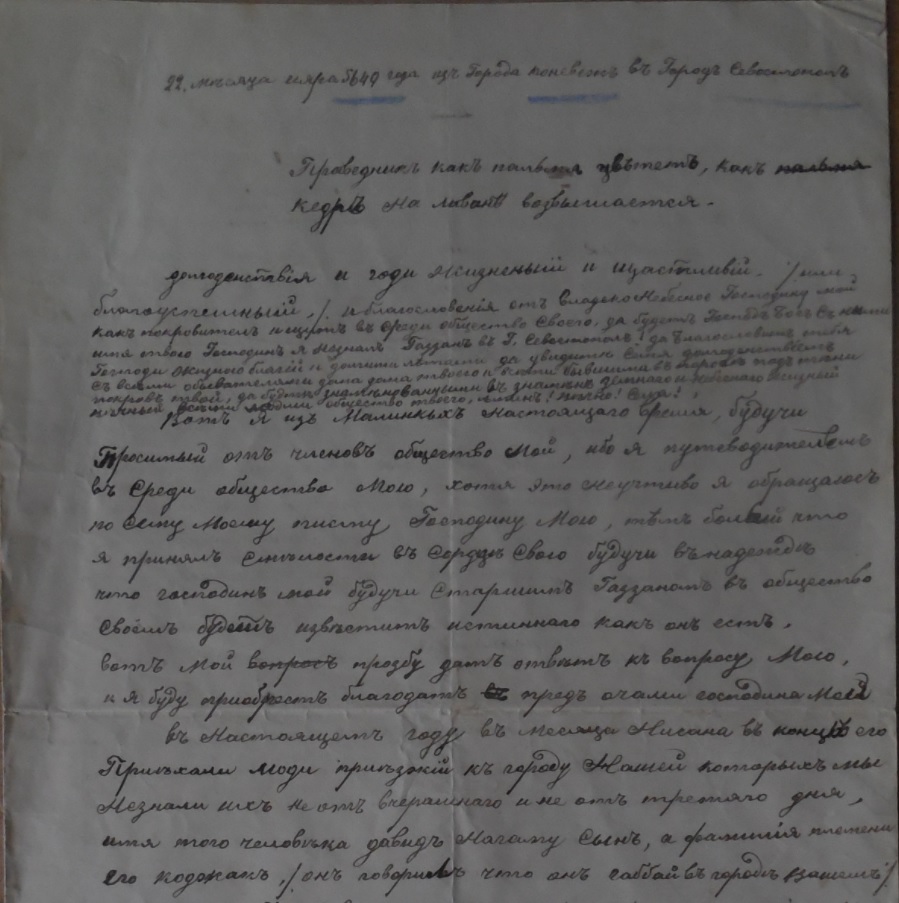 22. мѣсяца ияра 5649 года изъ Города поневежъ въ Городъ Севостополь
Праведникъ какъ пальма цвѣтетъ, какъ пальма
кедръ на ливанѣ возвышается.
долгоденствія и годи жизненый и щастливій. /или
благоуспешный,/ и благословенія отъ Владеко Небесное Господину мой
какъ покровитель и щитъ въ среди общество Своего, да будетъ Господь Богъ Съ ними
имя твоего Господинъ я Незналъ Газзанъ въ Г. Севостополь! да благословитъ тебя
Господи жизною благій и да увидитъ Сѣмя долгоденствіетъ
Съ всѣми обывателями дома твоего и
покровъ твой, да будтъ въ земнаго и небеснаго жизний
общество твоего, аминь! Сила!
Вотъ Я изъ Малинкыхъ Настоящаго время, будучи
Просимый отъ членовъ общество Мой, ибо я путеводителемъ
въ Среди общество Мою, хотя это неучтиво я обращалось
по Сему Моему писту, Господину Мою, тѣмъ болый что
я принялъ Смѣлости въ Сердцѣ Свого будучи въ надеждѣ
что господинъ мой будучи Старшимъ Газзаномъ въ общество
Своемъ будетъ извѣститъ истиннаго какъ онъ есть,
вотъ Мой вопросъ прозбу датъ отвѣтъ къ вопросу Мою,
и я буду приобрѣстъ благодать въ предъ очами господина Моей
въ Настоящемъ году въ месяца Нисана въ концѣ его
Приѣхали люди приѣзжій къ городу Нашей которыхъ мы
Незнали ихъ не отъ вчерашнаго и не отъ третяго дня,
имя того человѣка давидъ Нагаму Сынъ, а фамилія племени
его коджакъ, /онъ говорилъ что онъ саббай въ городѣ вашемъ/